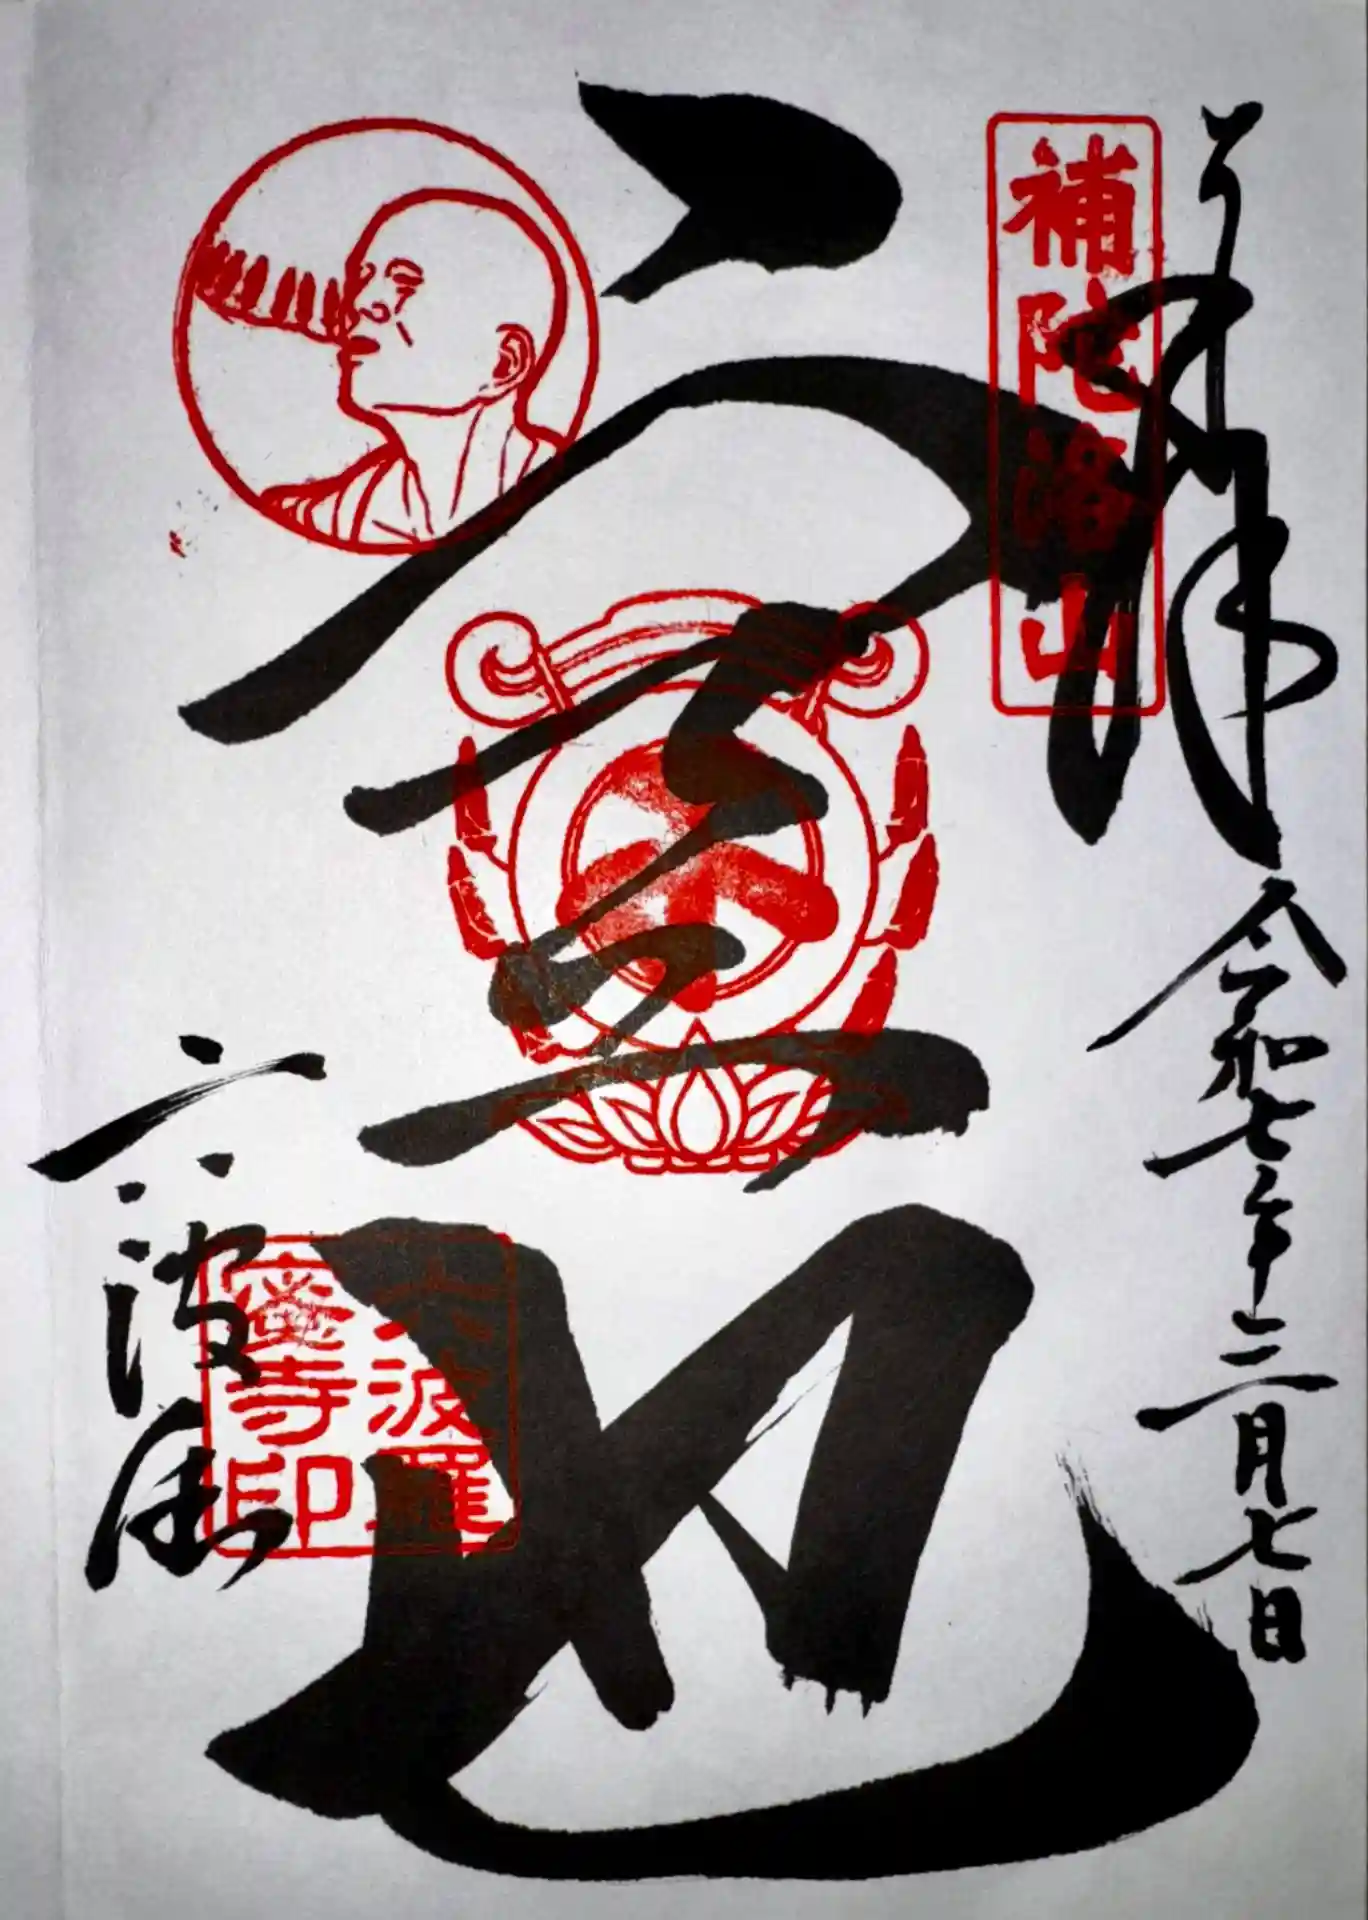 奉拝 令和七年十二月七日
補陀洛山
空也
六波羅
蜜寺印
六波羅